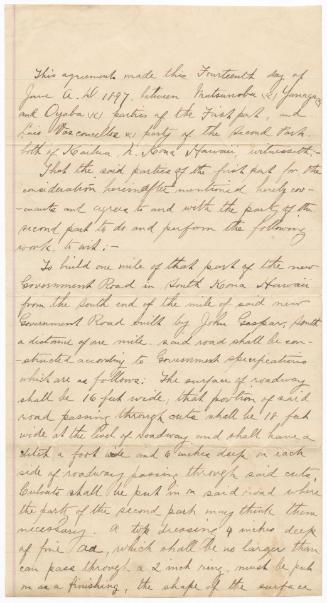 This agreement made this Fourteenth day of
June A.D 1897. between Matsunoba (k) Yanaga (k)
and Oyaba (k) parties of the First part, and
Luis Vasconcellos (k) party of the Second Part.
both of Kailua, N. Kona Hawaii, witnesseth;-
That the said parties of the first part for the
consideration hereinafter mentioned hereby cov-
enants and agrees to and with the party of the
second part to do and perform the following
work, to wit; -
To build one mile of that part of the new
Government Road in South Kona Hawaii
from the South end of the mile of said new
Government Road built by John Gaspar, South
a distance of one mile. said road shall be con-
structed according to Government specifications
which are as follows: The surface of roadway
shall be 16 feet wide, that portion of said
road passing through cuts shall be 18 feet
wide at the level of roadway and shall have a
ditch a foot wide and 6 inches deep on each
side of roadway passing through said cuts,
Culverts shall be put in in said road where
the party of the second part may think them
necessary. A top dressing 4 inches deep
of fine aa, which shall be no larger than
can pass through a 2 inch ring, must be put
in as a finishing, the shape of the surface